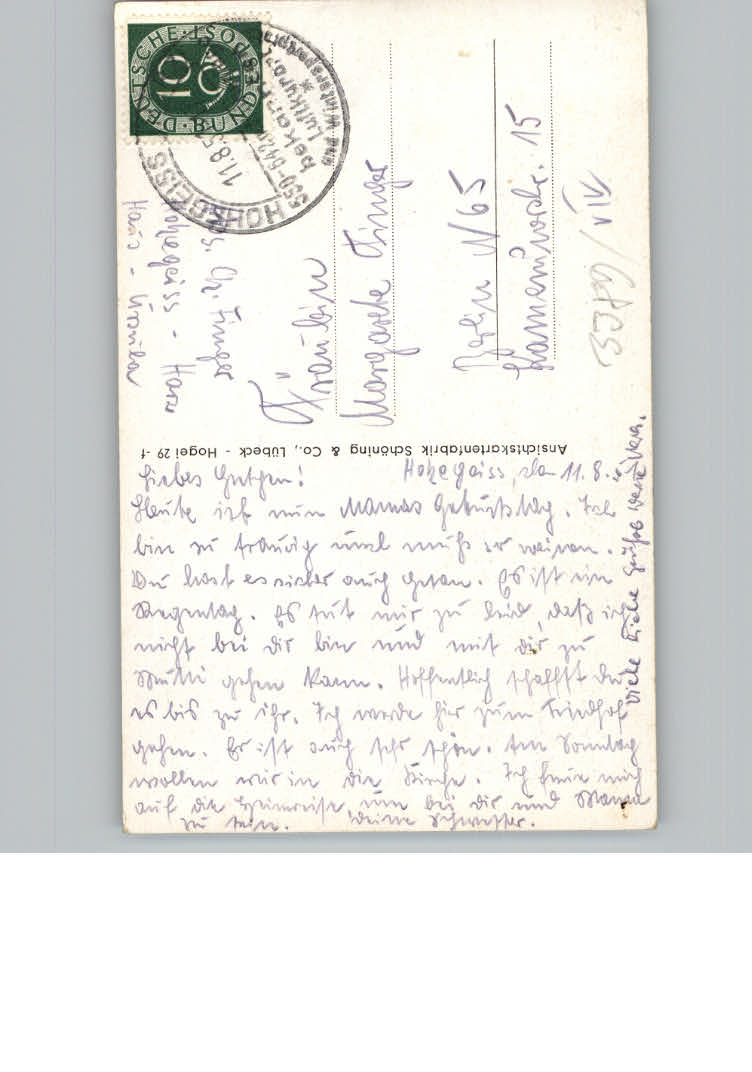 DEUTSCHE BUNDESPOST
10
HOHEGEISS
11.8.5
550-642
bekannter
Luftkurort
und Wintersportplatz
s. Ch. Finger
Hohegeiss - Harz
Haus - Ursula
Fräulein
Margarete Finger
Berlin N 65
Kameruner str. 15
Ansichtskartenfabrik Schöning & Co., Lübeck - Hogei 29 -f
Liebes Gretchen! Hohegeiss, den 11.8.
Heute ist nun Mamas Geburtstag. Ich
bin so traurig und muß so weinen.
Du hast es sicher auch getan. Es ist ein
Regentag. Es tut mir zu leid, daß ich
nicht bei dir bin und mit dir zu
Mutti gehen kann. Hoffentlich schaffst du
es bis zu ihr. Ich werde hier zum Friedhof
gehen. Er ist auch sehr schön. Am Sonntag
wollen wir in die Kirche. Ich freue mich
auf die Heimreise, um bei dir und Mama
zu sein. Deine Schwester.
Viele liebe Grüße Vera.